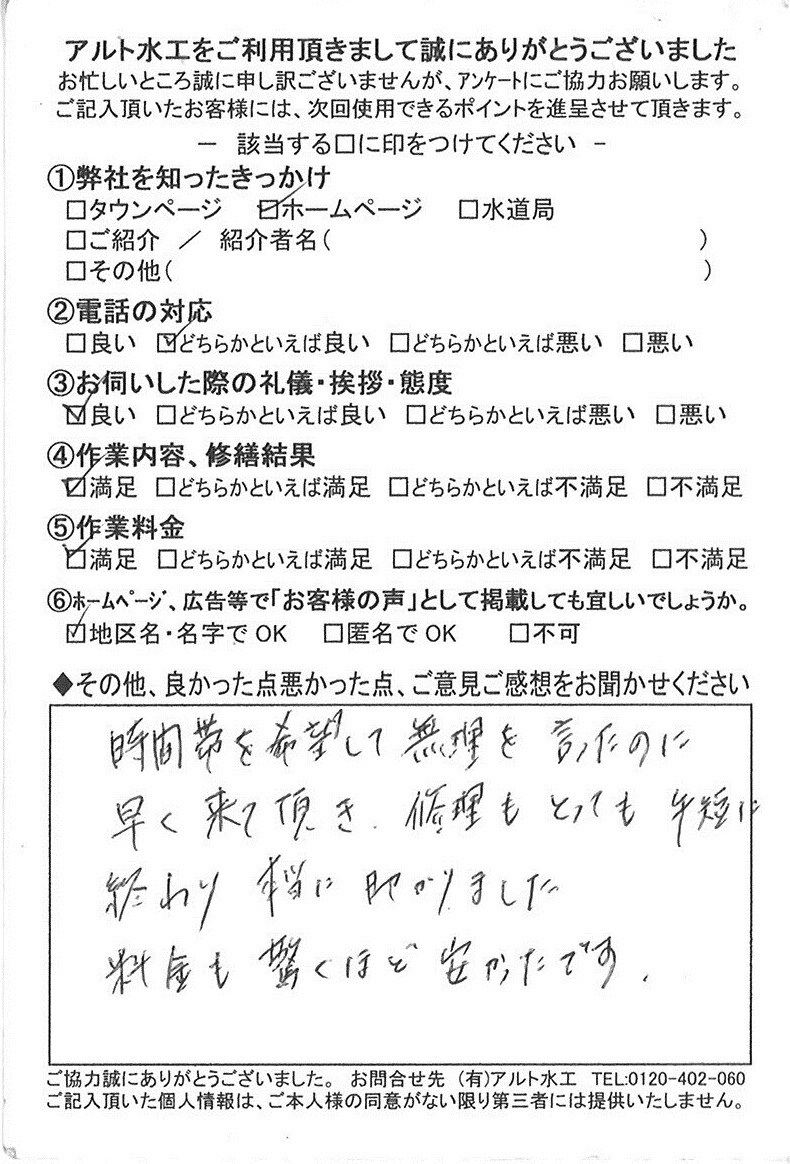 アルト水工をご利用頂きまして誠にありがとうございました
お忙しいところ誠に申し訳ございませんが、アンケートにご協力お願いします。
ご記入頂いたお客様には、次回使用できるポイントを進呈させて頂きます。
－ 該当する□に印をつけてください －
①弊社を知ったきっかけ
□タウンページ ☑ホームページ □水道局
□ご紹介 ／ 紹介者名( )
□その他( )
②電話の対応
□良い ☑どちらかといえば良い □どちらかといえば悪い □悪い
③お伺いした際の礼儀・挨拶・態度
☑良い □どちらかといえば良い □どちらかといえば悪い □悪い
④作業内容、修繕結果
☑満足 □どちらかといえば満足 □どちらかといえば不満足 □不満足
⑤作業料金
☑満足 □どちらかといえば満足 □どちらかといえば不満足 □不満足
⑥ホームページ、広告等で「お客様の声」として掲載しても宜しいでしょうか。
☑地区名・名字でOK □匿名でOK □不可
◆その他、良かった点悪かった点、ご意見ご感想をお聞かせください
時間帯を希望して無理を言ったのに
早く来て頂き、修理もとっても 短に
終わり 本当に助かりました
料金も驚くほど安かったです。
ご協力誠にありがとうございました。 お問合せ先 (有)アルト水工 TEL:0120-402-060
ご記入頂いた個人情報は、ご本人様の同意がない限り第三者には提供いたしません。